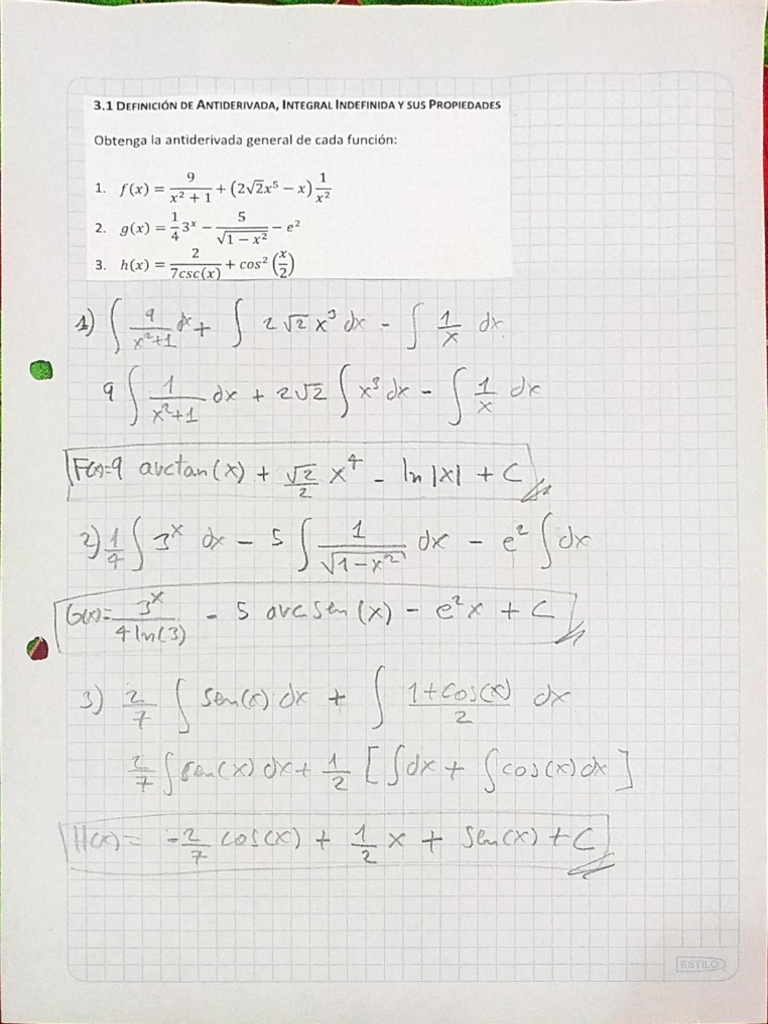 3.1 DEFINICIÓN DE ANTIDERIVADA, INTEGRAL INDEFINIDA Y SUS PROPIEDADES
Obtenga la antiderivada general de cada función:
1. f(x) = 9/(x² + 1) + (2√2x⁵ − x) 1/x²
2. g(x) = 1/4 3ˣ − 5/√(1 − x²) − e²
3. h(x) = 2/(7csc(x)) + cos² (x/2)
1) ∫ 9/(x²+1) dx + ∫ 2√2 x³ dx − ∫ 1/x dx
9 ∫ 1/(x²+1) dx + 2√2 ∫ x³ dx − ∫ 1/x dx
F(x)=9 arctan(x) + √2/2 x⁴ − ln|x| + C
2) 1/4 ∫ 3ˣ dx − 5 ∫ 1/√(1−x²) dx − e² ∫ dx
G(x)= 3ˣ/(4 ln(3)) − 5 arc sen(x) − e²x + C
3) 2/7 ∫ sen(x) dx + ∫ (1+cos(x))/2 dx
2/7 ∫ sen(x) dx + 1/2 [∫ dx + ∫ cos(x) dx]
H(x) = −2/7 cos(x) + 1/2 x + sen(x) + C
ESTILO